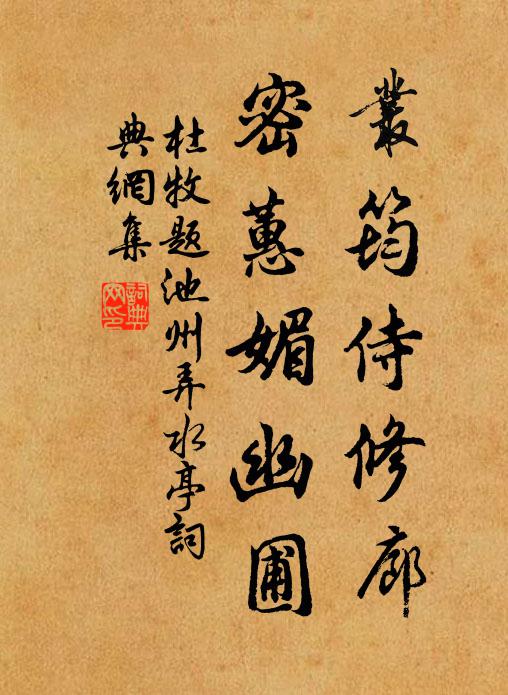 叢筠侍修廊
密蕙媚幽圃
杜牧題池州弄水亭詞
典網集
詞典網印